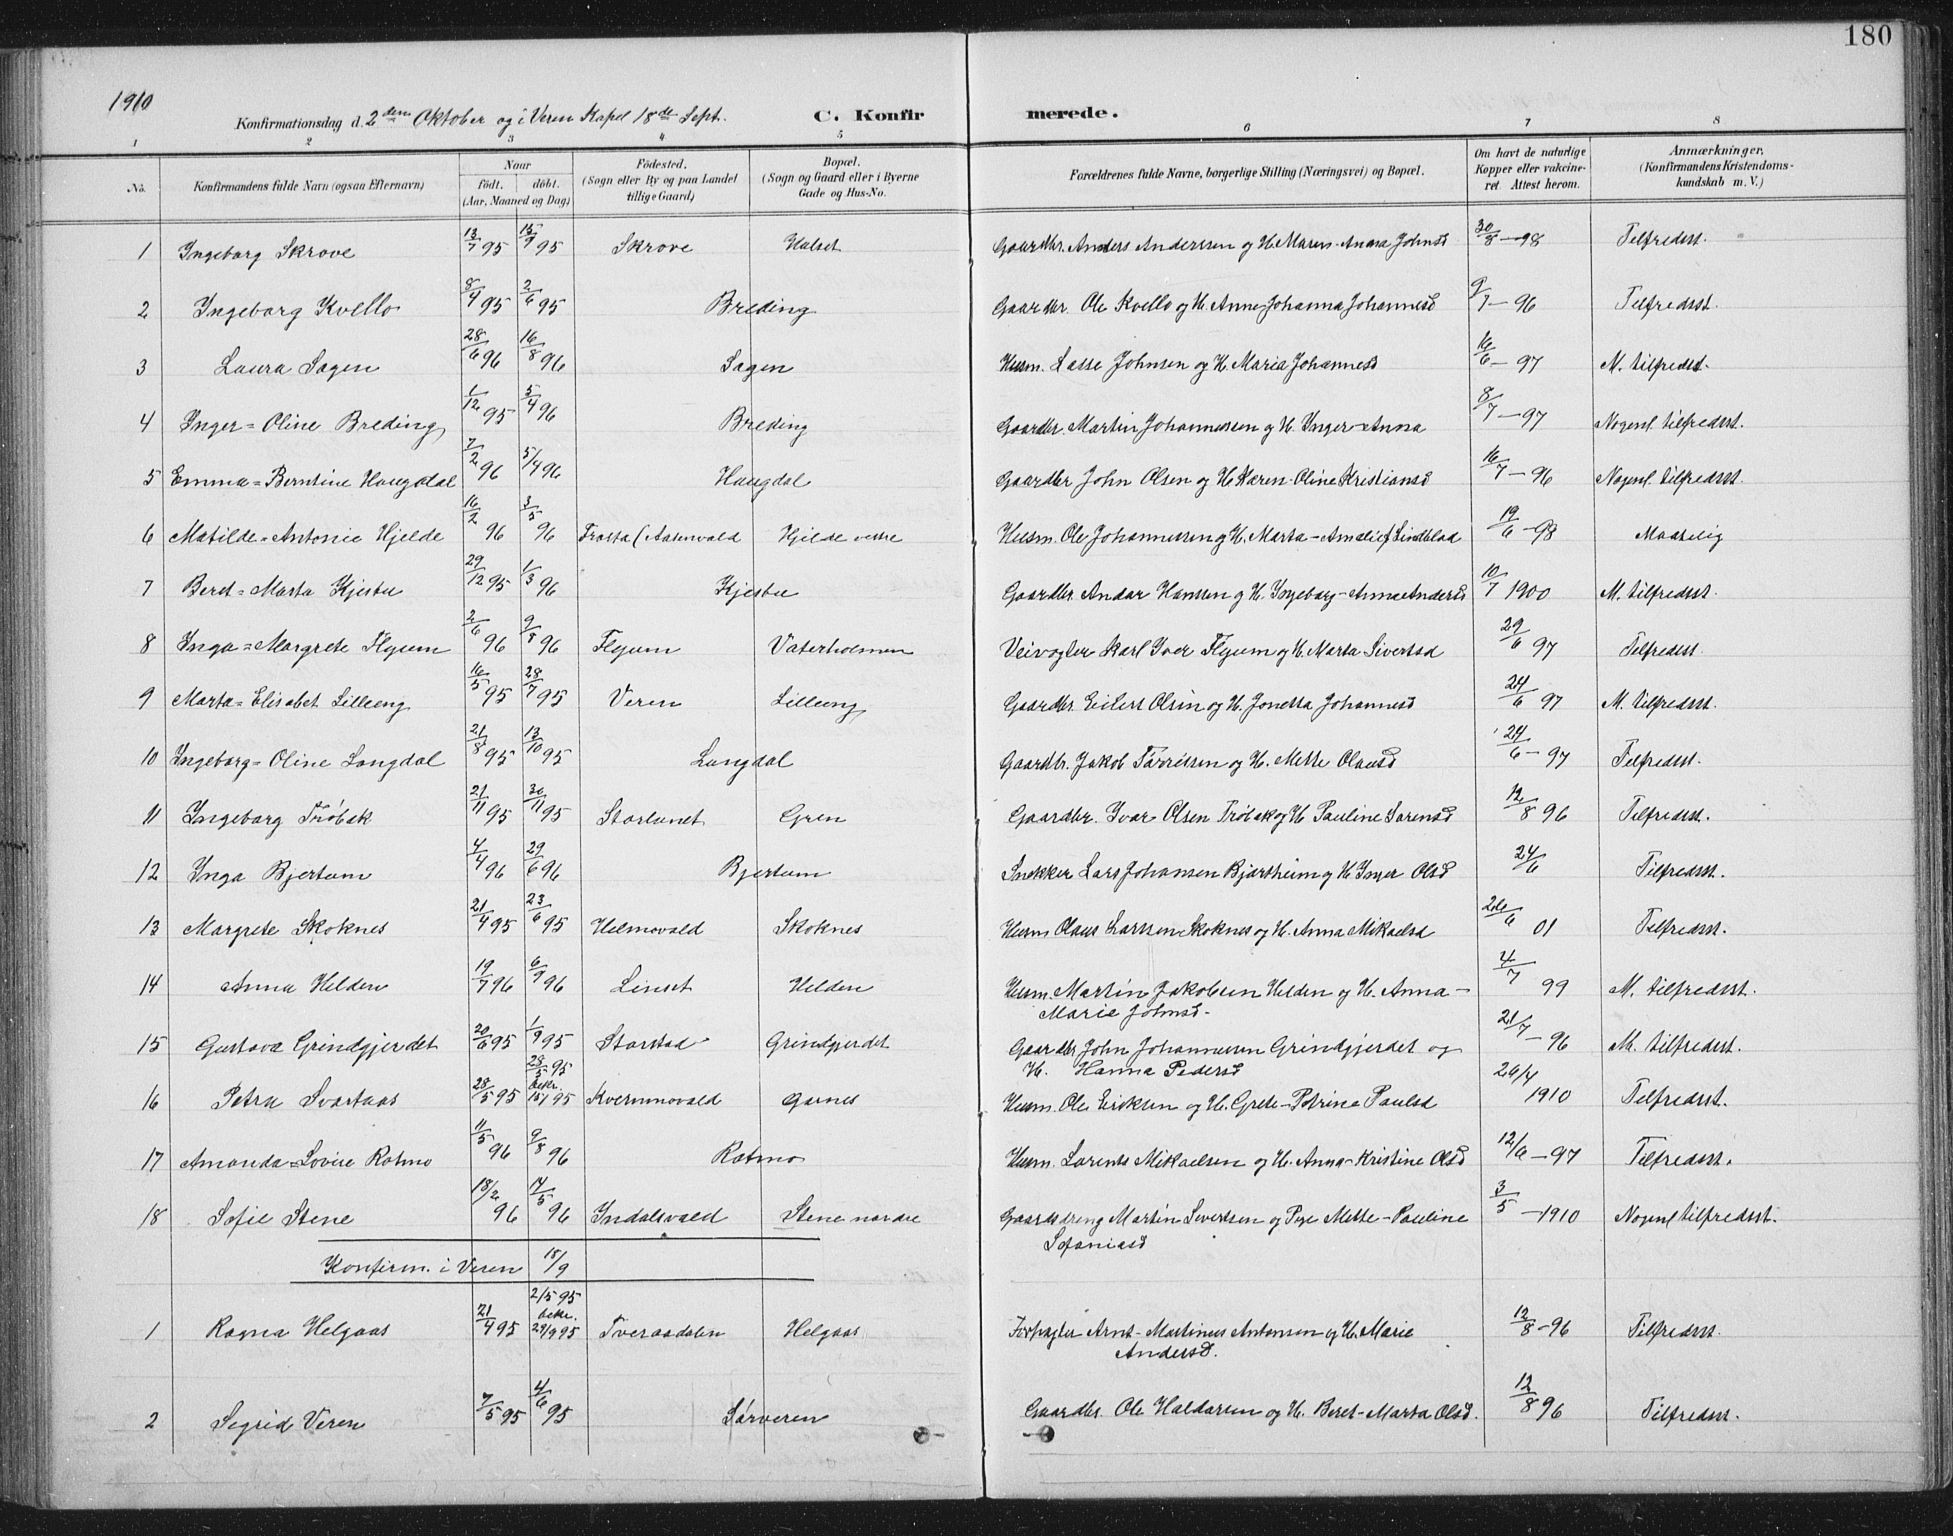 180
1910
Konfirmationsdag d. 2den Oktober og i Veren Kapel 18de Sept. C. Konfirmerede.
1 2 3 4 5 6 7 8
No. Konfirmandens fulde Navn (ogsaa Efternavn) Naar födt. döbt. (Aar, Maaned og Dag) Födested. (Sogn eller By og paa Landet tillige Gaard) Bopæl. (Sogn og Gaard eller i Byerne Gade og Hus-No. Forældrenes fulde Navne, borgerlige Stilling (Næringsvei) og Bopæl. Om havt de naturlige Kopper eller vakcineret Attest herom. Anmærkninger, (Konfirmandens Kristendomskundskab m. V.)
1 Ingeborg Skrove 13/7 95 15/9 95 Skrove Halset Gaardbr. Anders Anderssen og H. Maren-Anna Johnsd 30/8-98 Tilfredsst.
2 Ingeborg Kvello 8/4 95 2/6 95 Breding Gaardbr. Ole Kvello og H. Anne-Johanna Johannesd 9/7-96 Tilfredsst.
3 Laura Sagen 28/6 96 16/8 96 Sagen Husm. Lasse Johnsen og H. Maria Johannesd 16/6-97 M. tilfredsst.
4 Inger=Oline Breding 1/12 95 5/4 96 Breding Gaardbr. Martin Johannessen og H. Inger-Anna 8/7-97 Nogenl. tilfredsst.
5 Emma=Berntine Haugdal 7/2 96 5/4 96 Haugdal Gaardbr John Olsen og H. Karen-Oline Kristiansd 16/7-96 Nogenl. tilfredsst.
6 Matilde=Antonie Hjelde 16/2 96 3/5 96 Frosta Hjelde vestre Husm. Ole Johannessen og H. Marta-Amalie Lindblad 19/6-98 Maadelig
7 Beret=Marta Kjesbu 29/12 95 1/3 96 Kjesbu Gaardbr. Andor Hansen og H. Ingeborg-Anna Andersd 10/7 1900 M. tilfredsst.
8 Inga=Margrete Flyum 2/6 96 9/8 96 Flyum Vaterholmen Veivogter Karl Iver Flyum og H. Marta Sivertsd 29/6 97 Tilfredsst.
9 Marta=Elisabet Lilleeng 16/5 95 28/7 95 Veren Lilleeng Gaardbr. Eilert Olsen og H. Jonetta Johannesd 24/6 97 M. tilfredsst.
10 Ingeborg=Oline Langdal 21/8 95 13/10 95 Langdal Gaardbr. Jakob Tørrissen og H. Mette Olausd 24/6-97 Tilfredsst.
11 Ingeborg Trøbak 21/11 95 30/11 95 Storlunet Gren Gaardbr. Ivar Olsen Trøbak og H Pauline Sorensd 12/8 96 Tilfredsst.
12 Inga Bjertum 4/4 96 29/6 96 Bjertum Snekker Lars Johansen Bjartheim og H Inger Olsd 24/6 Tilfredsst.
13 Margrete Skoknes 21/4 95 23/6 95 Helmovald Skoknes Husm Olaus Larssen Skoknes og H. Anna Mikaelsd 26/6 01 Tilfredsst.
14 Anna Helden 19/7 96 6/9 96 Linset Helden Husm. Martin Jakobsen Helden og H. Anna-
Marie Johnsd- 4/7 99 M. tilfredsst.
15 Gustava Grindgjerdet 20/6 95 1/9 95 Storstad Grindgjerdet Gaardbr John Johannessen Grindgjerdet og
H. Hanna Pedersd 21/7-96 M. tilfredsst.
16 Petra Svartaas 28/5 95 28/5 95 bekr. 15/9 95 Kvernmovald Garnes Husm. Ole Eriksen og H. Grete-Petrine Paulsd 26/4 1910 Tilfredsst.
17 Amanda=Lovise Rotmo 11/5 96 9/8 96 Rotmo Husm. Lorents Mikaelsen og H. Anna-Kristine Olsd 12/6-97 Tilfredsst.
18 Sofie Stene 18/2 96 14/5 96 Indalsvald Stene nordre Gaardsdreng Martin Sivertsen og Pige Mette-Pauline
Sefaniasd 3/5-1910 Nogenl tilfredsst.
Konfirm. i Veren 18/9
1 Ragna Helgaas 21/4 95 21/5 95 bekr. 29/9 95 Tveraadalen Helgaas Forpagter Arnt-Martinus Antonsen og H. Marie
Andersd. 12/8-96 Tilfredsst.
2 Segrid Veren 7/5 95 4/6 95 Sørveren Gaardbr. Ole Haldorsen og H. Beret-Marta Olsd. 12/8 96 Tilfredsst.